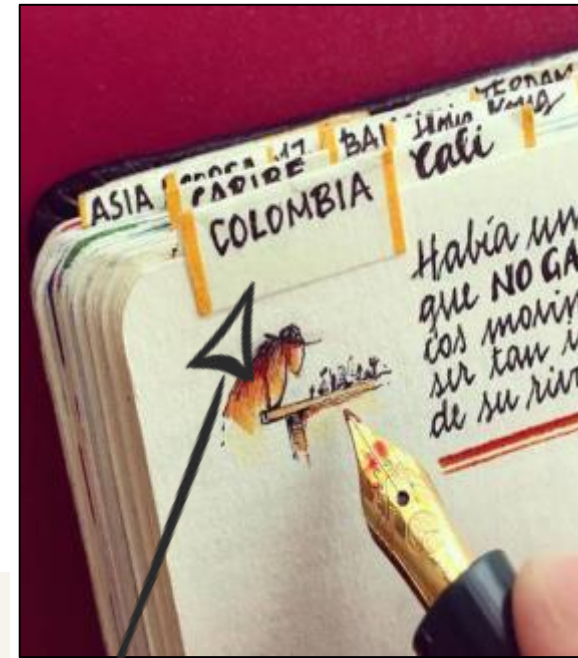 ASIA
CARIBE
BALI
COLOMBIA
Cali
Había un
que NO GA
cos movim
ser tan i
de su riv